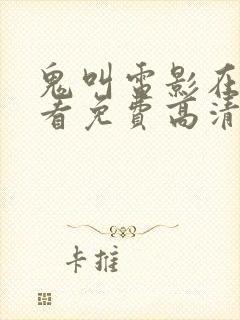 鬼叫雷影在
看免費高清
卡推